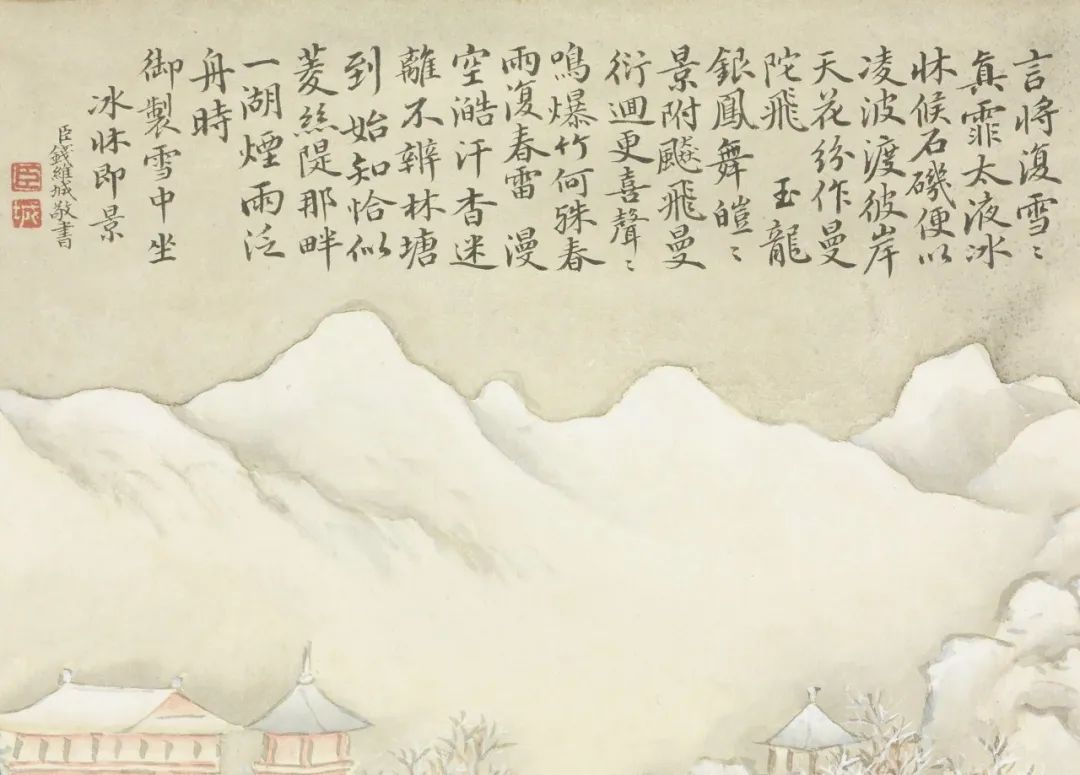 言將復雪〻
眞霏太液冰
牀候石磯便以
凌波渡彼岸
天花紛作曼
陀飛 玉龍
銀鳳舞皚〻
景附飈飛曼
衍迴更喜聲〻
鳴爆竹何殊春
雨復春雷 漫
空澔汗杳迷
離不辨林塘
到始知恰似
菱絲隄那畔
一湖煙雨泛
舟時
御製雪中坐
冰牀即景
臣錢維城敬書
臣
城